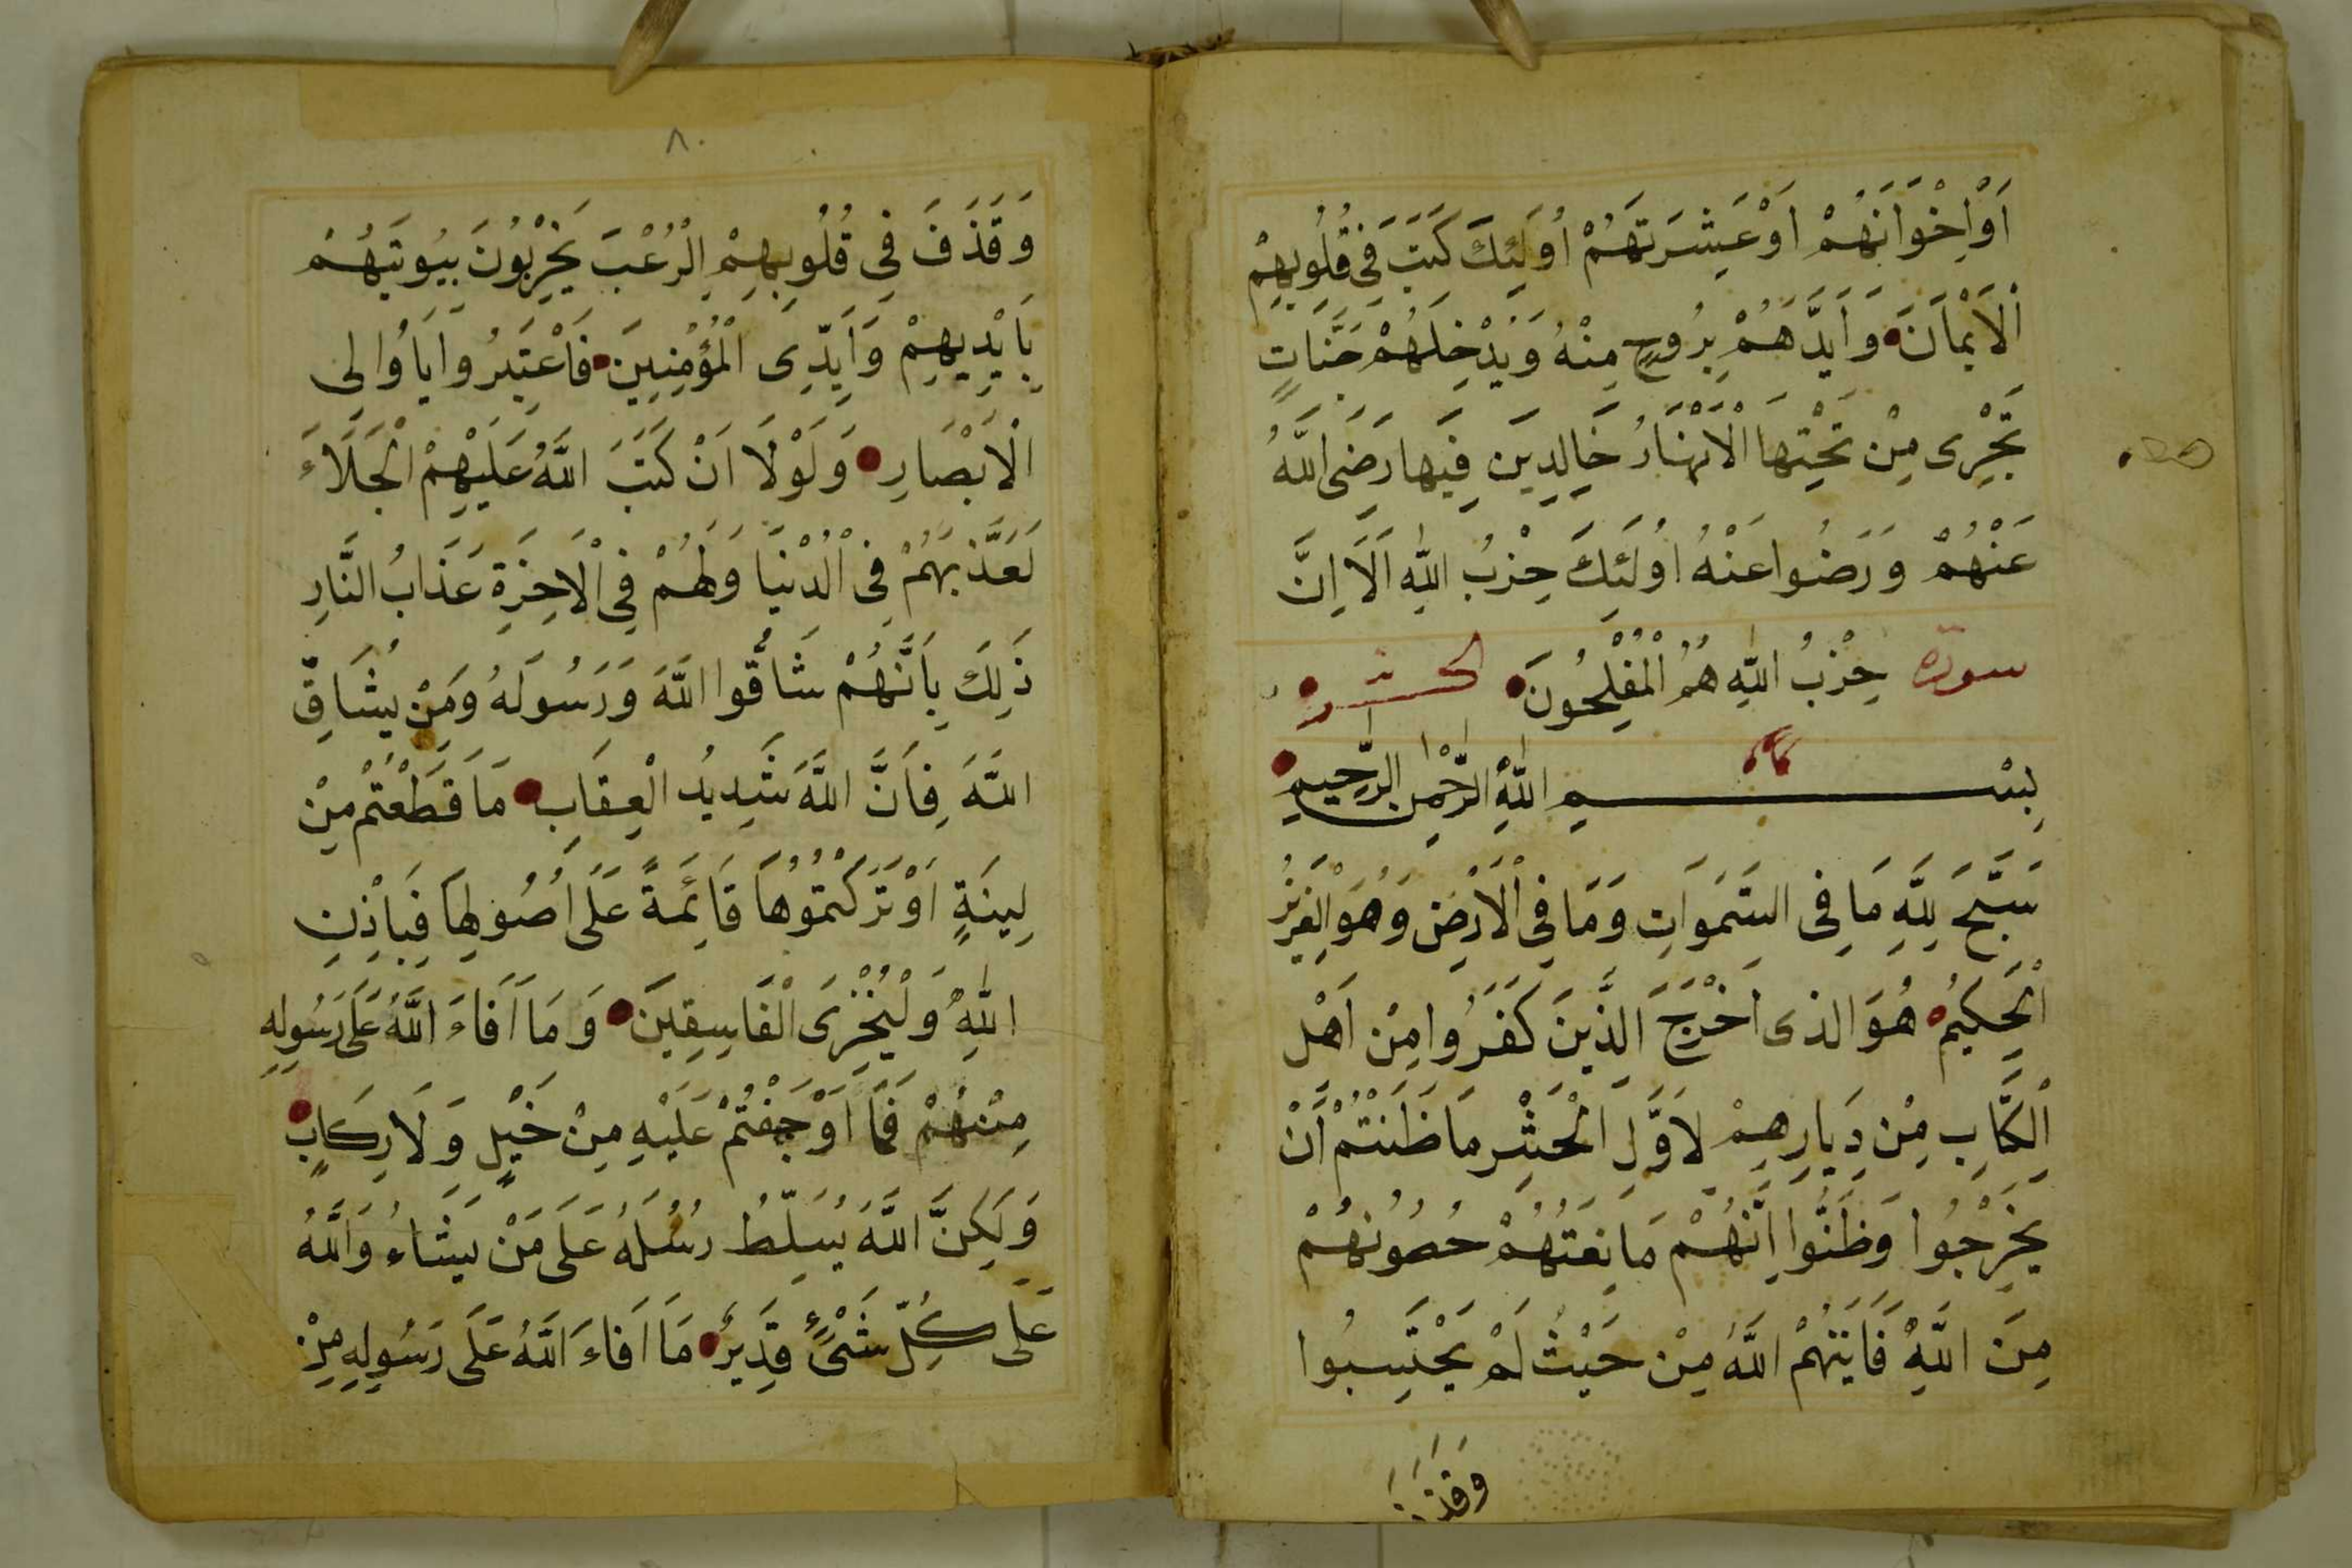 اَوْاِخْوَانَهُمْ اَوْعَشِيرَتَهُمْ اُولَئِكَ كَتَبَ فِي قُلُوبِهِمْ
اْلاَيمَانَ وَاَيَّدَهُمْ بِرُوحٍ مِنْهُ وَيُدْخِلُهُمْ جَنَّاتٍ
تَجْرِى مِنْ تَحْتِهَا الْاَنْهَارُ خَالِدِينَ فِيهَا رَضِىَ اللَّهُ
عَنْهُمْ وَرَضُوا عَنْهُ اُولَئِكَ حِزْبُ اللَّهِ اَلَا اِنَّ
سورة حِزْبُ اللَّهِ هُمُ الْمُفْلِحُونَ الحشر
بِسْمِ اللَّهِ الرَّحْمٰنِ الرَّحِيمِ
سَبَّحَ لِلَّهِ مَا فِى السَّمَوَاتِ وَمَا فِى الْاَرْضِ وَهُوَ الْعَزِيزُ
الْحَكِيمُ هُوَ الذى اَخْرَجَ الَّذِينَ كَفَرُوا مِنْ اَهْلِ
الْكِتَابِ مِنْ دِيَارِهِمْ لِاَوَّلِ الْحَشْرِ مَا ظَنَنْتُمْ اَنْ
يَخْرُجُوا وَظَنُّوا اَنَّهُمْ مَانِعَتُهُمْ حُصُونُهُمْ
مِنَ اللَّهِ فَاَتَيهُمْ اللَّهُ مِنْ حَيْثُ لَمْ يَحْتَسِبُوا
وَقَذَ
٨٠
وَقَذَفَ فِى قُلُوبِهِمِ الْرُعْبَ يُخْرِبُونَ بِيُوتَهُمْ
بِاَيْدِيهِمْ وَاَيْدِى الْمُؤْمِنِينَ فَاعْتَبِرُوا يَا اُولِى
الْاَبْصَارِ وَلَوْلَا اَنْ كَتَبَ اللَّهُ عَلَيْهِمْ الْجَلَاءَ
لَعَذَّبَهُمْ فِى الْدُنْيَا وَلَهُمْ فِى الْاَخِرَةِ عَذَابُ النَّارِ
ذَلِكَ بِاَنَّهُمْ شَاقُّوا اللَّهَ وَرَسُولَهُ وَمَنْ يُشَاقِّ
اللَّهَ فِاَنَّ اللَّهَ شَدِيدُ الْعِقَابِ مَا قَطَعْتُمْ مِنْ
لِينَةٍ اَوْتَرَكْتُمُوهَا قَائِمَةً عَلَى اُصُولِهَا فَبِاِذْنِ
اللَّهِ وَلْيُخْزِىَ الْفَاسِقِينَ وَمَا اَفَاءَ اللَّهُ عَلَى رَسُولِهِ
مِنْهُمْ فَمَا اَوْجَفْتُمْ عَلَيْهِ مِنْ خَيْلٍ وَلَا رِكَابٍ
وَلَكِنَّ اللَّهَ يُسَلِّطُ رُسُلَهُ عَلَى مَنْ يَشَاءُ وَاللَّهُ
عَلَى كُلِّ شَىْءٍ قَدِيرٌ مَا اَفَاءَ اللَّهُ عَلَى رَسُولِهِ مِنْ